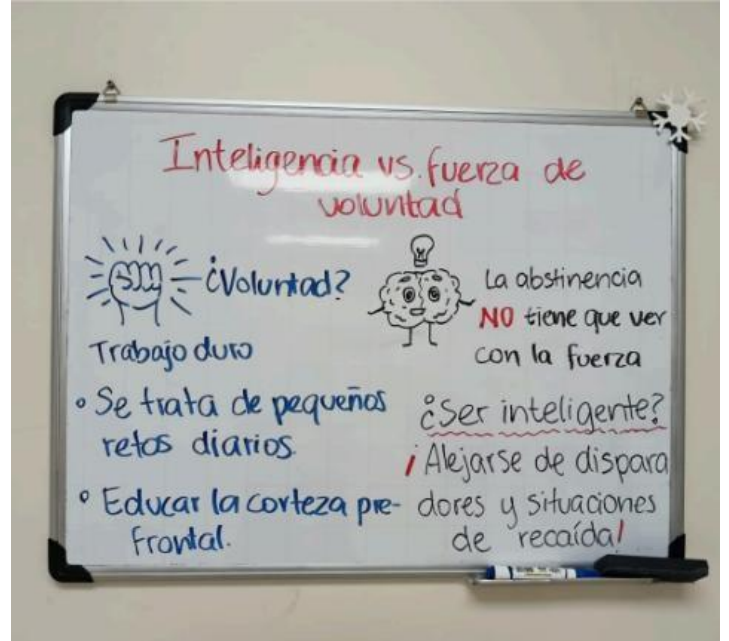 Inteligencia vs. fuerza de
voluntad
¿Voluntad?
Trabajo duro
• Se trata de pequeños
retos diarios.
• Educar la corteza pre-
frontal.
La abstinencia
NO tiene que ver
con la fuerza
¿Ser inteligente?
¡Alejarse de dispara
dores y situaciones
de recaída!